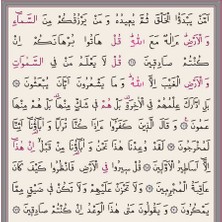 أَمَّن يَبْدَؤُا الْخَلْقَ ثُمَّ يُعِيدُهُ وَمَن يَرْزُقُكُم مِّنَ السَّمَاءِ
وَالْأَرْضِ أَإِلَٰهٌ مَّعَ اللَّهِ قُلْ هَاتُوا بُرْهَانَكُمْ إِن
كُنتُمْ صَادِقِينَ ۝ قُل لَّا يَعْلَمُ مَن فِي السَّمَاوَاتِ
وَالْأَرْضِ الْغَيْبَ إِلَّا اللَّهُ وَمَا يَشْعُرُونَ أَيَّانَ يُبْعَثُونَ ۝
بَلِ ادَّارَكَ عِلْمُهُمْ فِي الْآخِرَةِ بَلْ هُمْ فِي شَكٍّ مِّنْهَا بَلْ هُم مِّنْهَا
عَمُونَ ۝ وَقَالَ الَّذِينَ كَفَرُوا أَإِذَا كُنَّا تُرَابًا وَآبَاؤُنَا أَئِنَّا
لَمُخْرَجُونَ ۝ لَقَدْ وُعِدْنَا هَٰذَا نَحْنُ وَآبَاؤُنَا مِن قَبْلُ إِنْ هَٰذَا
إِلَّا أَسَاطِيرُ الْأَوَّلِينَ ۝ قُلْ سِيرُوا فِي الْأَرْضِ فَانظُرُوا كَيْفَ كَانَ
عَاقِبَةُ الْمُجْرِمِينَ ۝ وَلَا تَحْزَنْ عَلَيْهِمْ وَلَا تَكُن فِي ضَيْقٍ مِّمَّا
يَمْكُرُونَ ۝ وَيَقُولُونَ مَتَىٰ هَٰذَا الْوَعْدُ إِن كُنتُمْ صَادِقِينَ